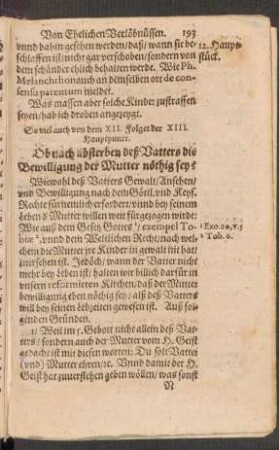 Von Ehelichen Verlöbnüssen. 193
vnnd dahin gesehen werden/daß/wann sie be-
schlaffen ist/nicht gar verschoben/sondern von
dem schänder ehlich behalten werde. Wie Ph.
Melanchthon auch an demselben ort de con-
sensu parentum meldet.
12. Haupt-
stuck.
Was massen aber solche Kinder zustraffen
seyen/hab ich droben angezeygt.
So viel auch von dem XII. Folget der XIII.
Hauptpunct.
Ob nach absterben deß Vatters die
Bewilligung der Mutter nöthig sey?
Wiewohl deß Vatters Gewalt/Ansehen/
vnd Bewilligung nach dem Göttl. vnd Keys.
Rechte fürnemlich erfordert/vnnd bey seinem
leben deß Mutter willen weit fürgezogen wirdt:
Wie auß dem Gesetz Gottes 1/ exempel To-
biæ 2, vnnd dem Weltlichen Recht/nach wel-
chem die Mutter jre Kinder in gewalt nie hat/
zuersehen ist. Jedoch/ wann der Vatter nicht
mehr bey leben ist/ halten wir billich darfür in
vnsern reformirten Kirchen/daß der Mutter
bewilligung eben nöthig sey/ als deß Vatters
will bey seinen lebzeiten gewesen ist. Auß fol-
genden Gründen.
1 Exo. 20.
2 Tob. 6.
1/ Weil im 5. Gebott nicht allein deß Vat-
ters/ sondern auch der Mutter vom H. Geist
gedacht ist mit diesen worten: Du solt Vatter
(vnd) Mutter ehren/ec. Vnnd damit der H.
Geist hat zuuerstehen geben wöllen/ was sonst
N